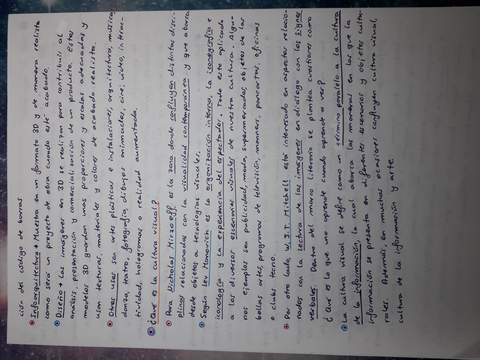 ción del código de barras
Infoarquitectura → Muestra en un formato 3D y de manera realista
como será un proyecto de obra cuando esté acabado.
Diseño → Las imágenes en 3D se realizan para contribuir al
análisis, presentación y comercialización de un producto. Estos
modelos 3D guardan unas proporciones y escalas adecuadas y
usan texturas, materiales y colores de acabado realista.
Otros usos son artes plásticas e instalaciones, arquitectura, música,
danza, teatro, fotografía, dibujos animados, cine, video, interac-
tividad, hologramas o realidad aumentada.
¿Qué es la cultura visual?
Para Nicholas Mirzoeff es la zona donde confluyen distintas disci-
plinas relacionadas con la visualidad contemporánea y que abarca
desde objetos a tecnologías visuales.
Según Lev Manovich es la organización interna, la iconografía e
iconología y la experiencia del espectador. Todo esto aplicado
a los diversos escenarios visuales de nuestra cultura. Algu-
nos ejemplos son publicidad, moda, supermercados, objetos de las
bellas artes, programas de televisión, banners, pancartas, oficinas
o clubs tecno.
Por otro lado, W.J.T. Mitchell está interesado en aspectos relacio-
nados con la lectura de las imágenes en diálogo con los signos
verbales. Dentro del marco literario se plantea cuestiones como
¿Qué es lo que uno aprende cuando aprende a ver?
La cultura visual se define como un término paralelo a la cultura
de la información, la cual abarca las maneras en las que la
información se presenta en diferentes escenarios y objetos cultu-
rales. Además, en muchas ocasiones confluyen cultura visual,
cultura de la información y arte.